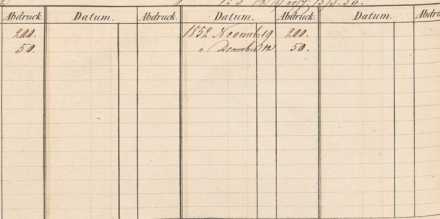 Abdruck. Datum. Abdruck. Datum. Abdruck. Datum. Abdru
200. 1852 Novemb. 19 200.
50. " December 12 50.